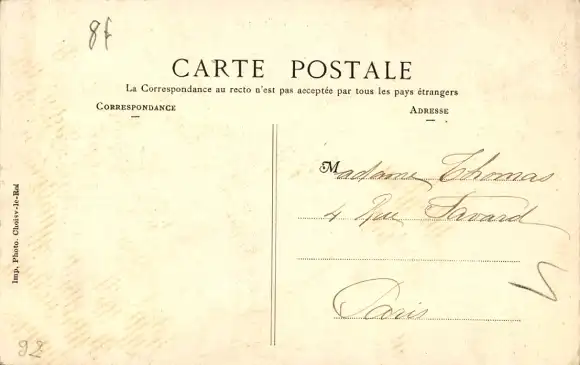 8f
CARTE POSTALE
La Correspondance au recto n'est pas acceptée par tous les pays étrangers
CORRESPONDANCE
ADRESSE
Madame Thomas
4 Rue Favard
Paris
Imp. Photo. Choisy-le-Roi
92